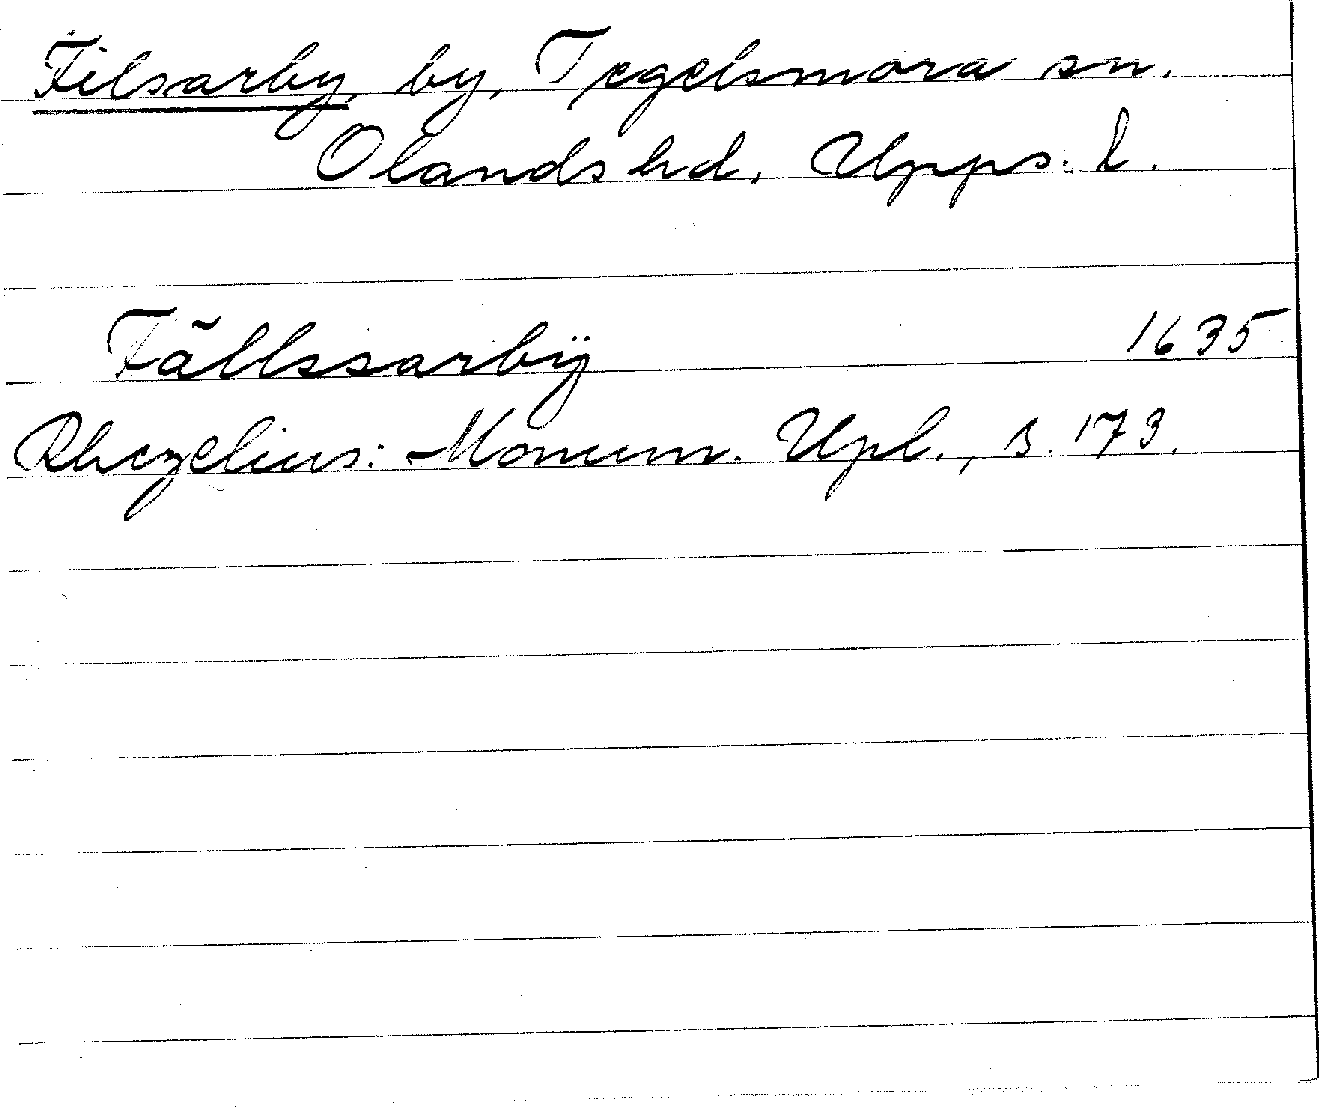 Filsarby, by, Tegelsmora sn.
Olands hd. Upps. l.
Fällssarbÿ 1635
Rhezelius: Monum. Upl., s. 173.